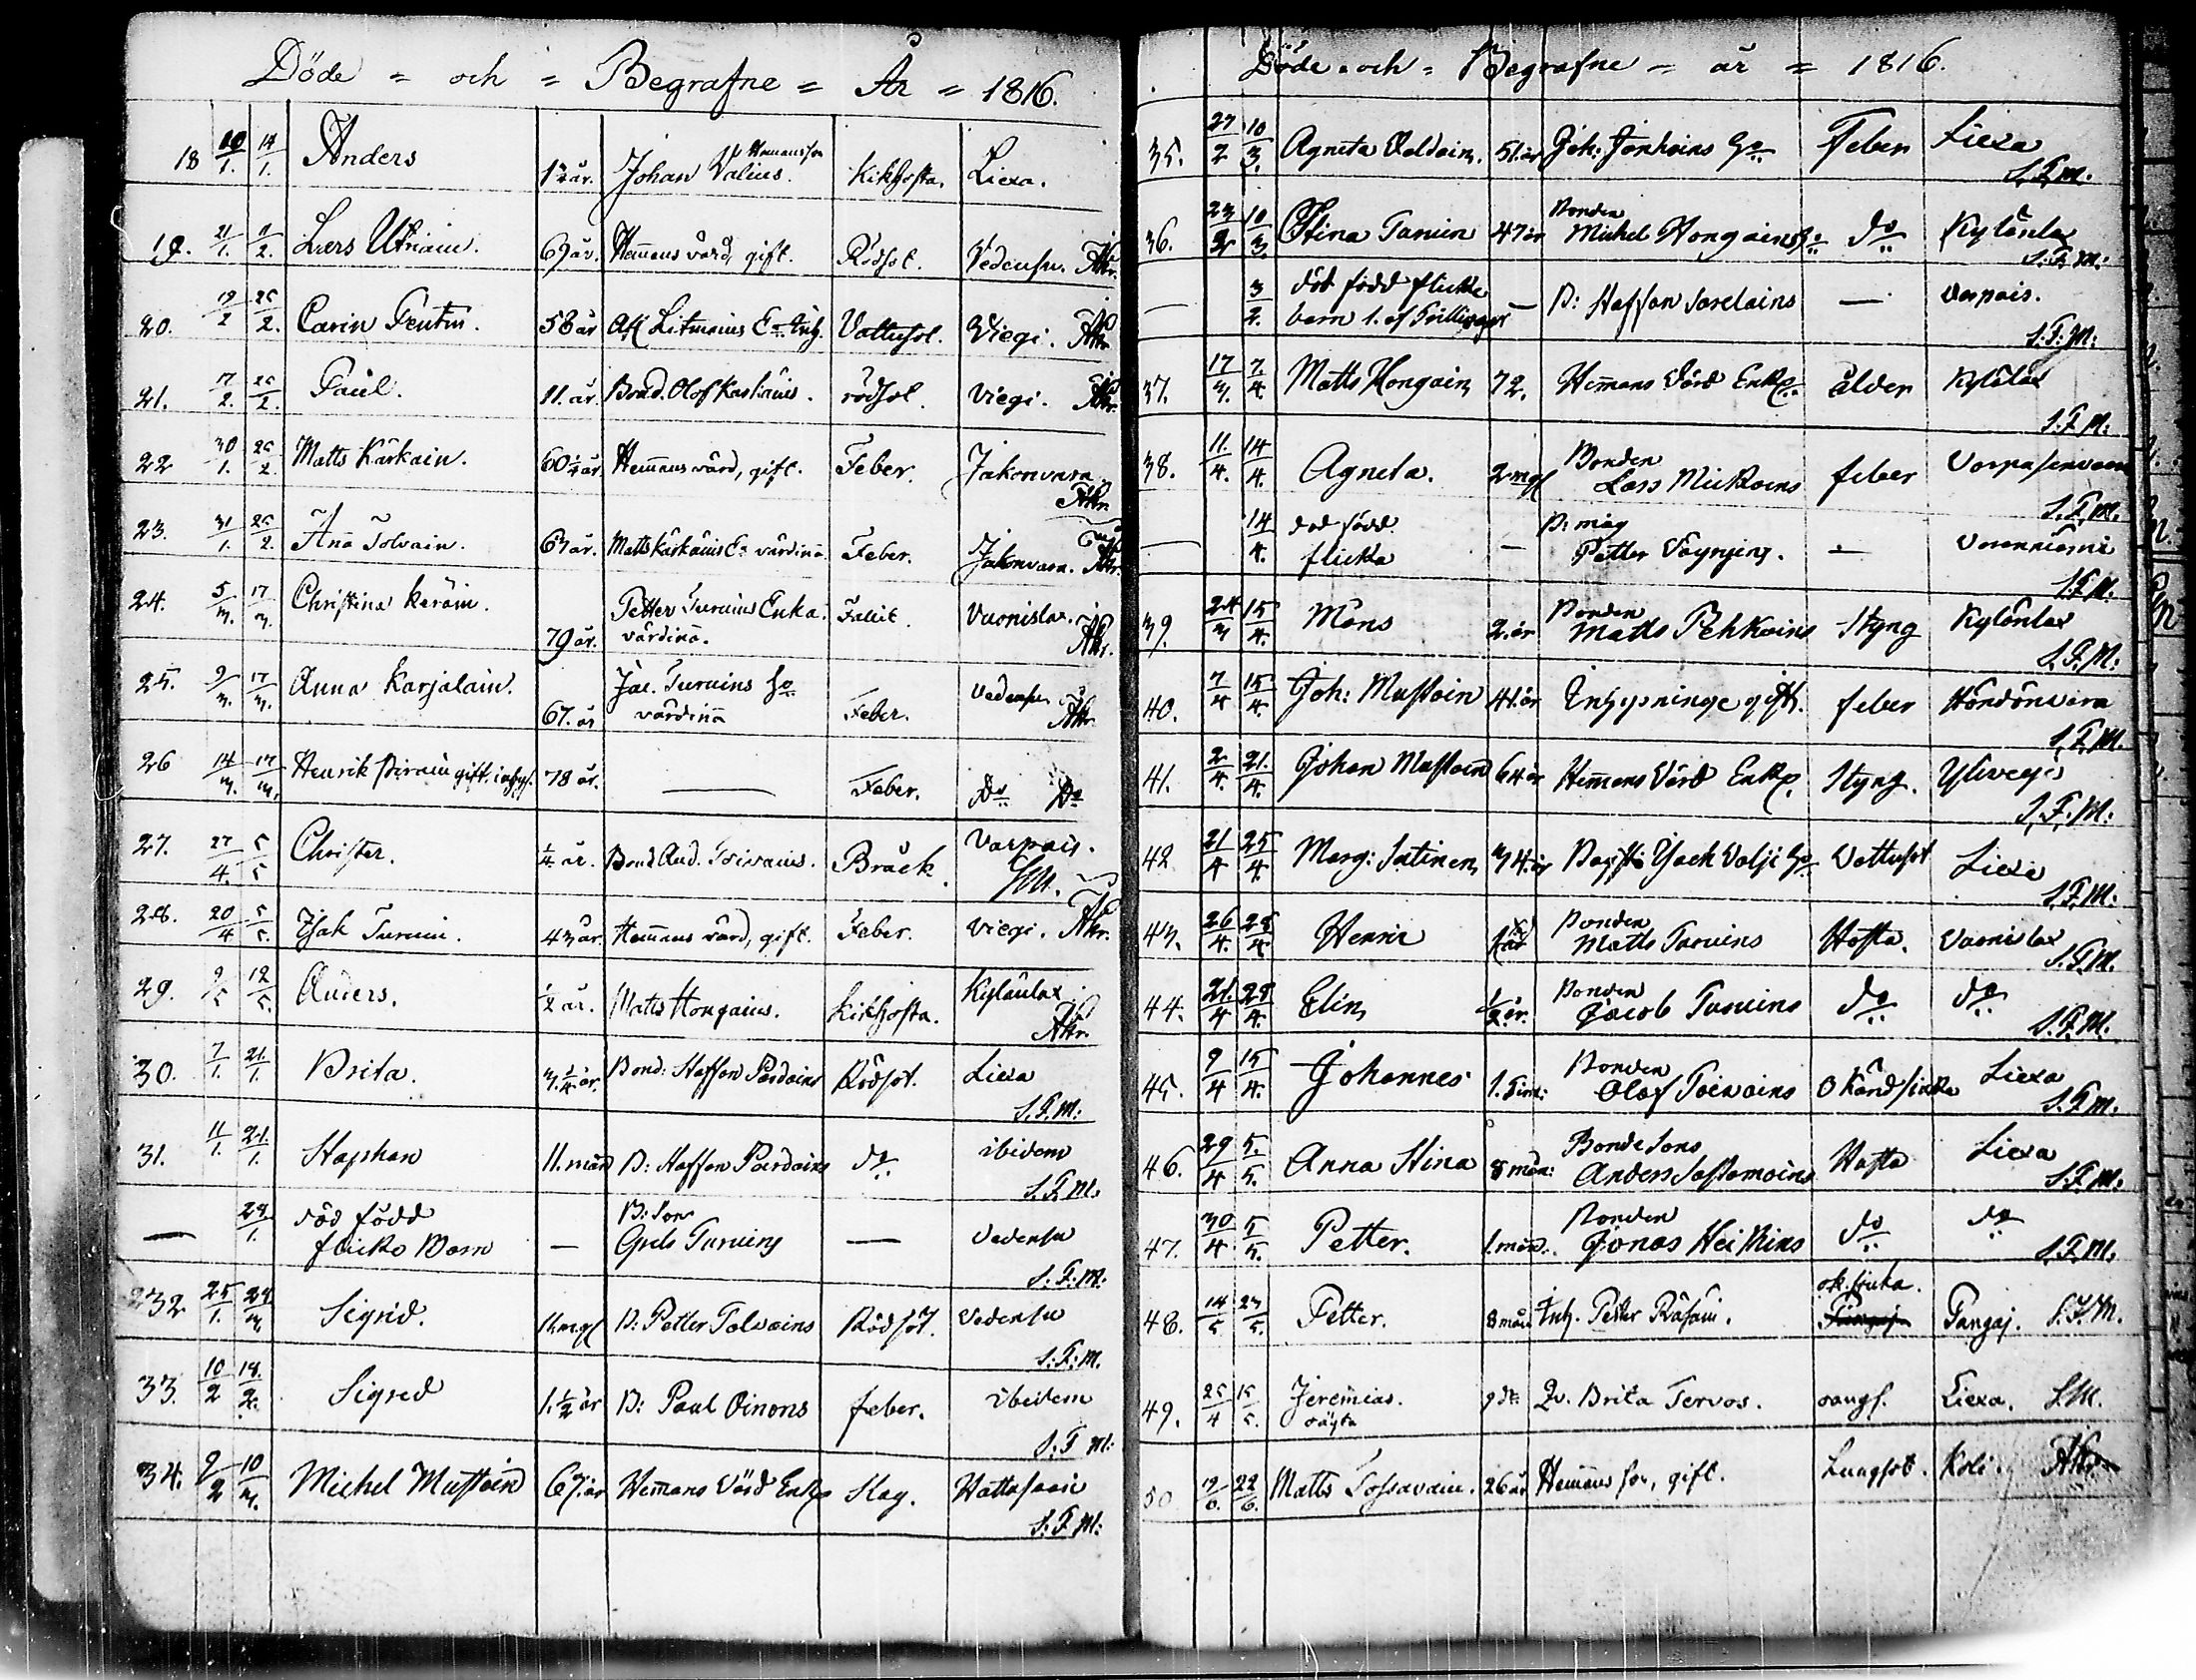 Döde = och = Begrafne = År = 1816.
18 10/1. 14/1. Anders Johan Valius. Kikhosta. Liexa.
19. 21/1. 11/2. Lars 69 år. Hemmans värd, gift. Rödsot. Vedensu.
20. 19/2 25/2. Carin 58 år Vattusot. Viegi.
21. 17/2. 25/2. Paul. 11. år. Bond. Olof rödsot. Viegi.
22 30/1. 25/2. Matts Kärkäin. 60 1/2 år Hemmans värd, gift. Feber. Jakonvara.
23. 31/1. 25/2. Anna Tolvain. 63 år. Matts Kärkäins En. värdinna. Feber. Jakonvara.
24. 5/3. 17/3. Christina Keräin. 79 år. Petter Turuins Enka. värdinna. Vuonislax.
25. 9/3. 17/3. Anna Karjalain. 67. år Jac. Turuins Ho värdinna Feber. Vedensu
26 14/3. 17/3. Henrik Piirain gift. inhys. 78 år. — Feber. Do Do
27. 27/4. 5/5 Christer. 1/4 år. Bond And. Toivains. Bråck. Varpais.
28. 20/4 5/5. Isak Turuin. 43 år. Hemmans värd, gift. Feber. Viegi.
29. 9/5 12/5. Anders. 1/2 år. Matts Hongains. Kikhosta. Kylänlax
30. 7/1. 21/1. Brita. 3. 1/4 år. Bond: Staffan Pardains Rödsot. Liexa
S.F.M:
31. 11/1. 21/1. Staphan 11. mån B: Staffan Pardains do. ibidem
S.F.M:
— 28/1. död född — B: Sons — Vedensu
flicko Barn Grels Turuins
S:F:M:
32 25/1. 24/3. Sigrid. B: Petter Tolvains Rödsot. Vedensu
S:F:M.
33. 10/2 18/2. Sigred 1. 1/2 år B: Paul Oinons feber. ibidem
S:F M:
34. 9/2 10/3. Michel Mustoin 63. år Hemmans Värd Hattusaari
S:F M:
Döde = och = Begrafne = år = 1816.
35. 27/2 10/3. Agneta 51. år Joh: Ho Feber Liexa
S.F.M:
36. 23/2 10/3. Stina Turuin 47 år Bonden Michel Hongains Ho do Kylänlax
S:F M:
— 3/2. död född flicko — B: Staffan Sorelains — Varpais.
barn 1. af Trillingar
S:F:M:
37. 17/3. 7/4. Matts Hongain 72. Hemmans Värd Enkl. ålder Kylälax
S:F M:
38. 11./4. 14/4. Agneta. Bonden Lars Mickoins feber
S.F.M.
— 14/4. död född — B: måg —
flicka Petter Väyrynen.
S.F.M.
39. 24/3 15/4. Måns 2. år Bonden Matts Pehkoins Styng Kylänlax
S.F.M:
40. 7/4 15/4. Joh: Mustoin 41. år Inhysninge gift. feber
S.F.M.
41. 2/4. 21./4. Johan Mustoin 64 år Hemmans Värd Enkl. Styng. Ylivegi
S.F.M:
42 21/4 25/4. Marg: Satinen 74 år Vattusot Liexa
S.F.M:
43. 26/4. 28/4. Henric Bonden Matts Turuins Hosta. Vuonislax
S.F.M.
44. 21./4 28/4. Elin 1/2 år. Bonden Jacob Turuins do do
S.F.M.
45. 9/4 15/4. Johannes 1. Tim: Bonden Olof Toivains Okänd siukd Liexa
S.F.M.
46. 29/4 5./5. Anna Stina 8 mån: Bonde Sons Anders Sostamoins Hosta Liexa
S.F.M:
47. 30/4 5/5. Petter. 1. mån. Bonden Jonas Heikins do do
S.F.M.
48. 14/5 23/5. Petter. 8 mån Inh. Petter Räsäin. ok. siuka. Pangaj. S.F.M.
49. 25/4 15/5. Jeremias. oäkta Qv. Brita Tervos. Liexa. S.M.
50 9/6. 22/6. Matts Tossavain. 26 år Hemmans son, gift. Lungsot. Koli.